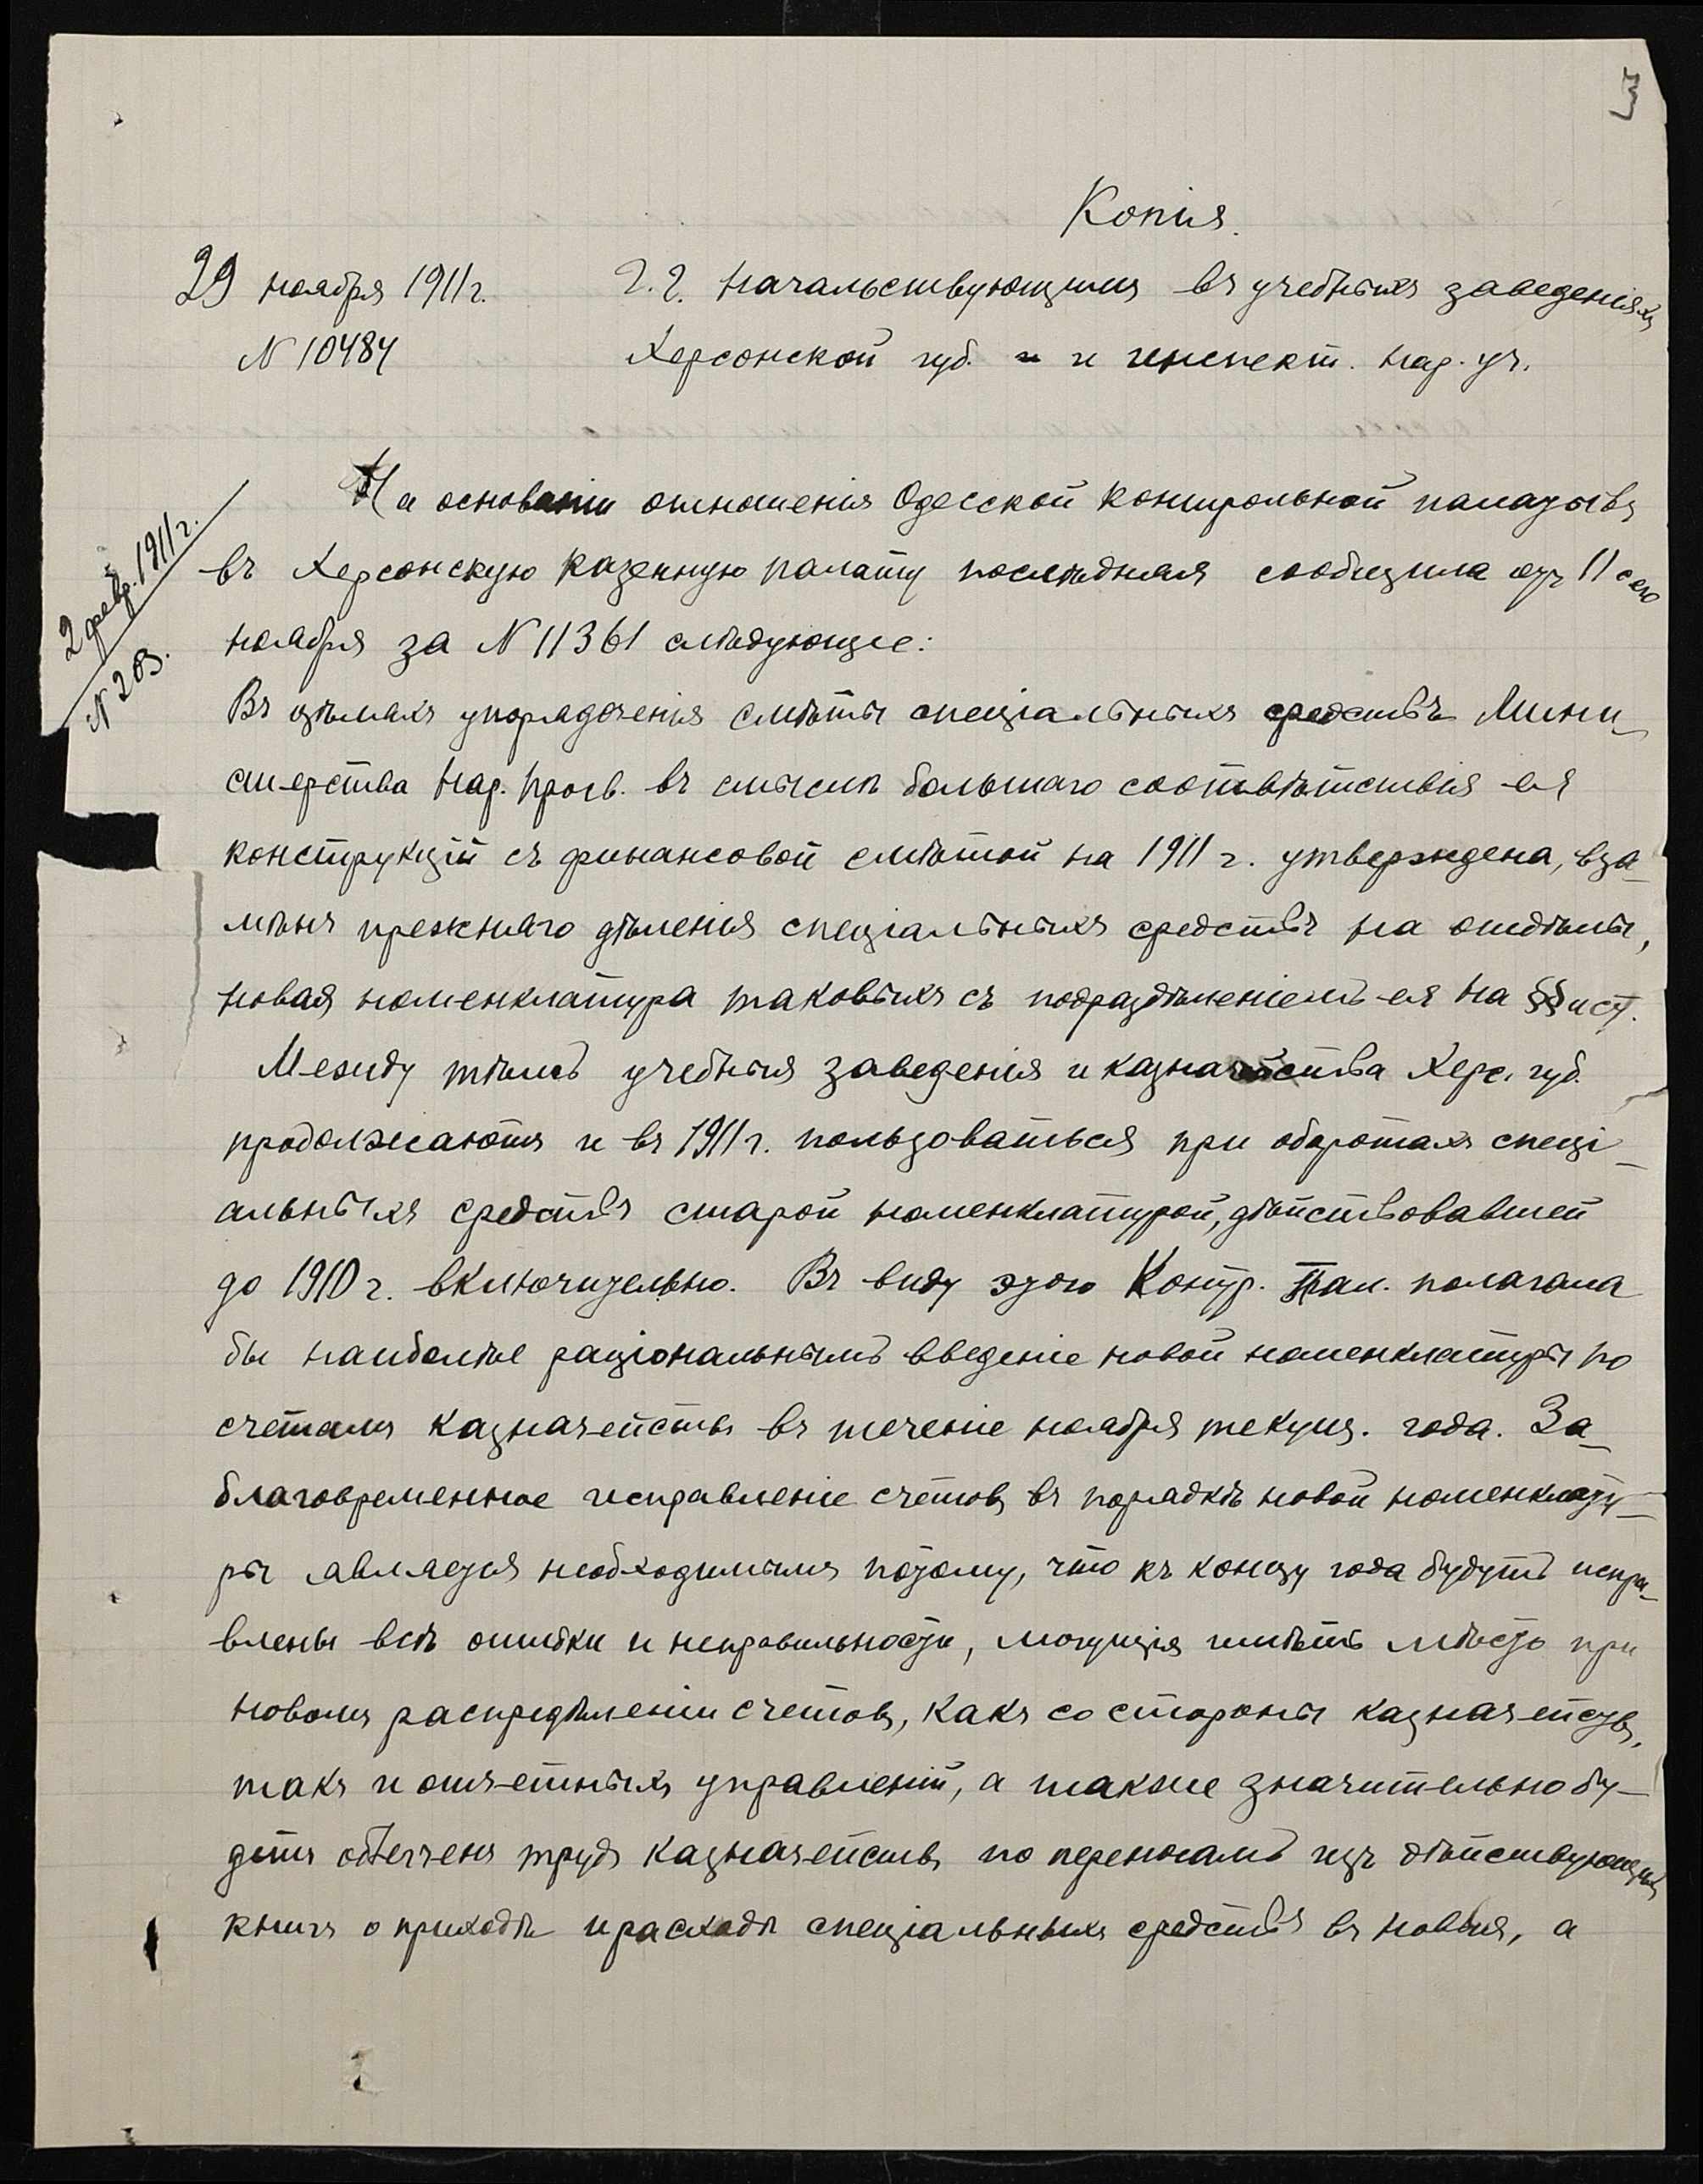 3
Копія.
29 ноября 1911 г.
N 10484
Г.г. начальствующимъ въ учебныхъ заведеніяхъ
Херсонской губ. и инспект. нар. уч.
2 февр. 1911 г.
N 203.
На основаніи отношенія Одесской контрольной палаты въ
въ Херсонскую казенную палату послѣдняя сообщила отъ 11 сего
ноября за N 11361 слѣдующее:
Въ цѣляхъ упорядоченія смѣты спеціальныхъ средствъ Мини-
стерства Нар. Просв. въ смыслѣ большаго соотвѣтствія ея
конструкціи съ финансовой смѣтой на 1911 г. утверждена, вза-
мѣнъ прежняго дѣленія спеціальныхъ средствъ на отдѣлы,
новая номенклатура таковыхъ съ подраздѣленіемъ ея на §§ и ст.
Между тѣмъ учебныя заведенія и казначейства Херс. губ.
продолжаютъ и въ 1911 г. пользоваться при оборотахъ спеці-
альныхъ средствъ старой номенклатурой, дѣйствовавшей
до 1910 г. включительно. Въ виду этого Контр. Пал. полагала
бы наиболѣе раціональнымъ введеніе новой номенклатуры по
счетамъ казначействъ въ теченіе ноября текущ. года. За-
благовременное исправленіе счетовъ въ порядкѣ новой номенклату-
ры является необходимымъ потому, что къ концу года будутъ испра-
влены всѣ ошибки и неправильности, могущія имѣть мѣсто при
новомъ распредѣленіи счетовъ, какъ со стороны казначействъ,
такъ и отчетныхъ управленій, а также значительно бу-
детъ облегченъ трудъ казначействъ по переносамъ изъ дѣйствующихъ
книгъ о приходѣ и расходѣ спеціальныхъ средствъ въ новыя, а